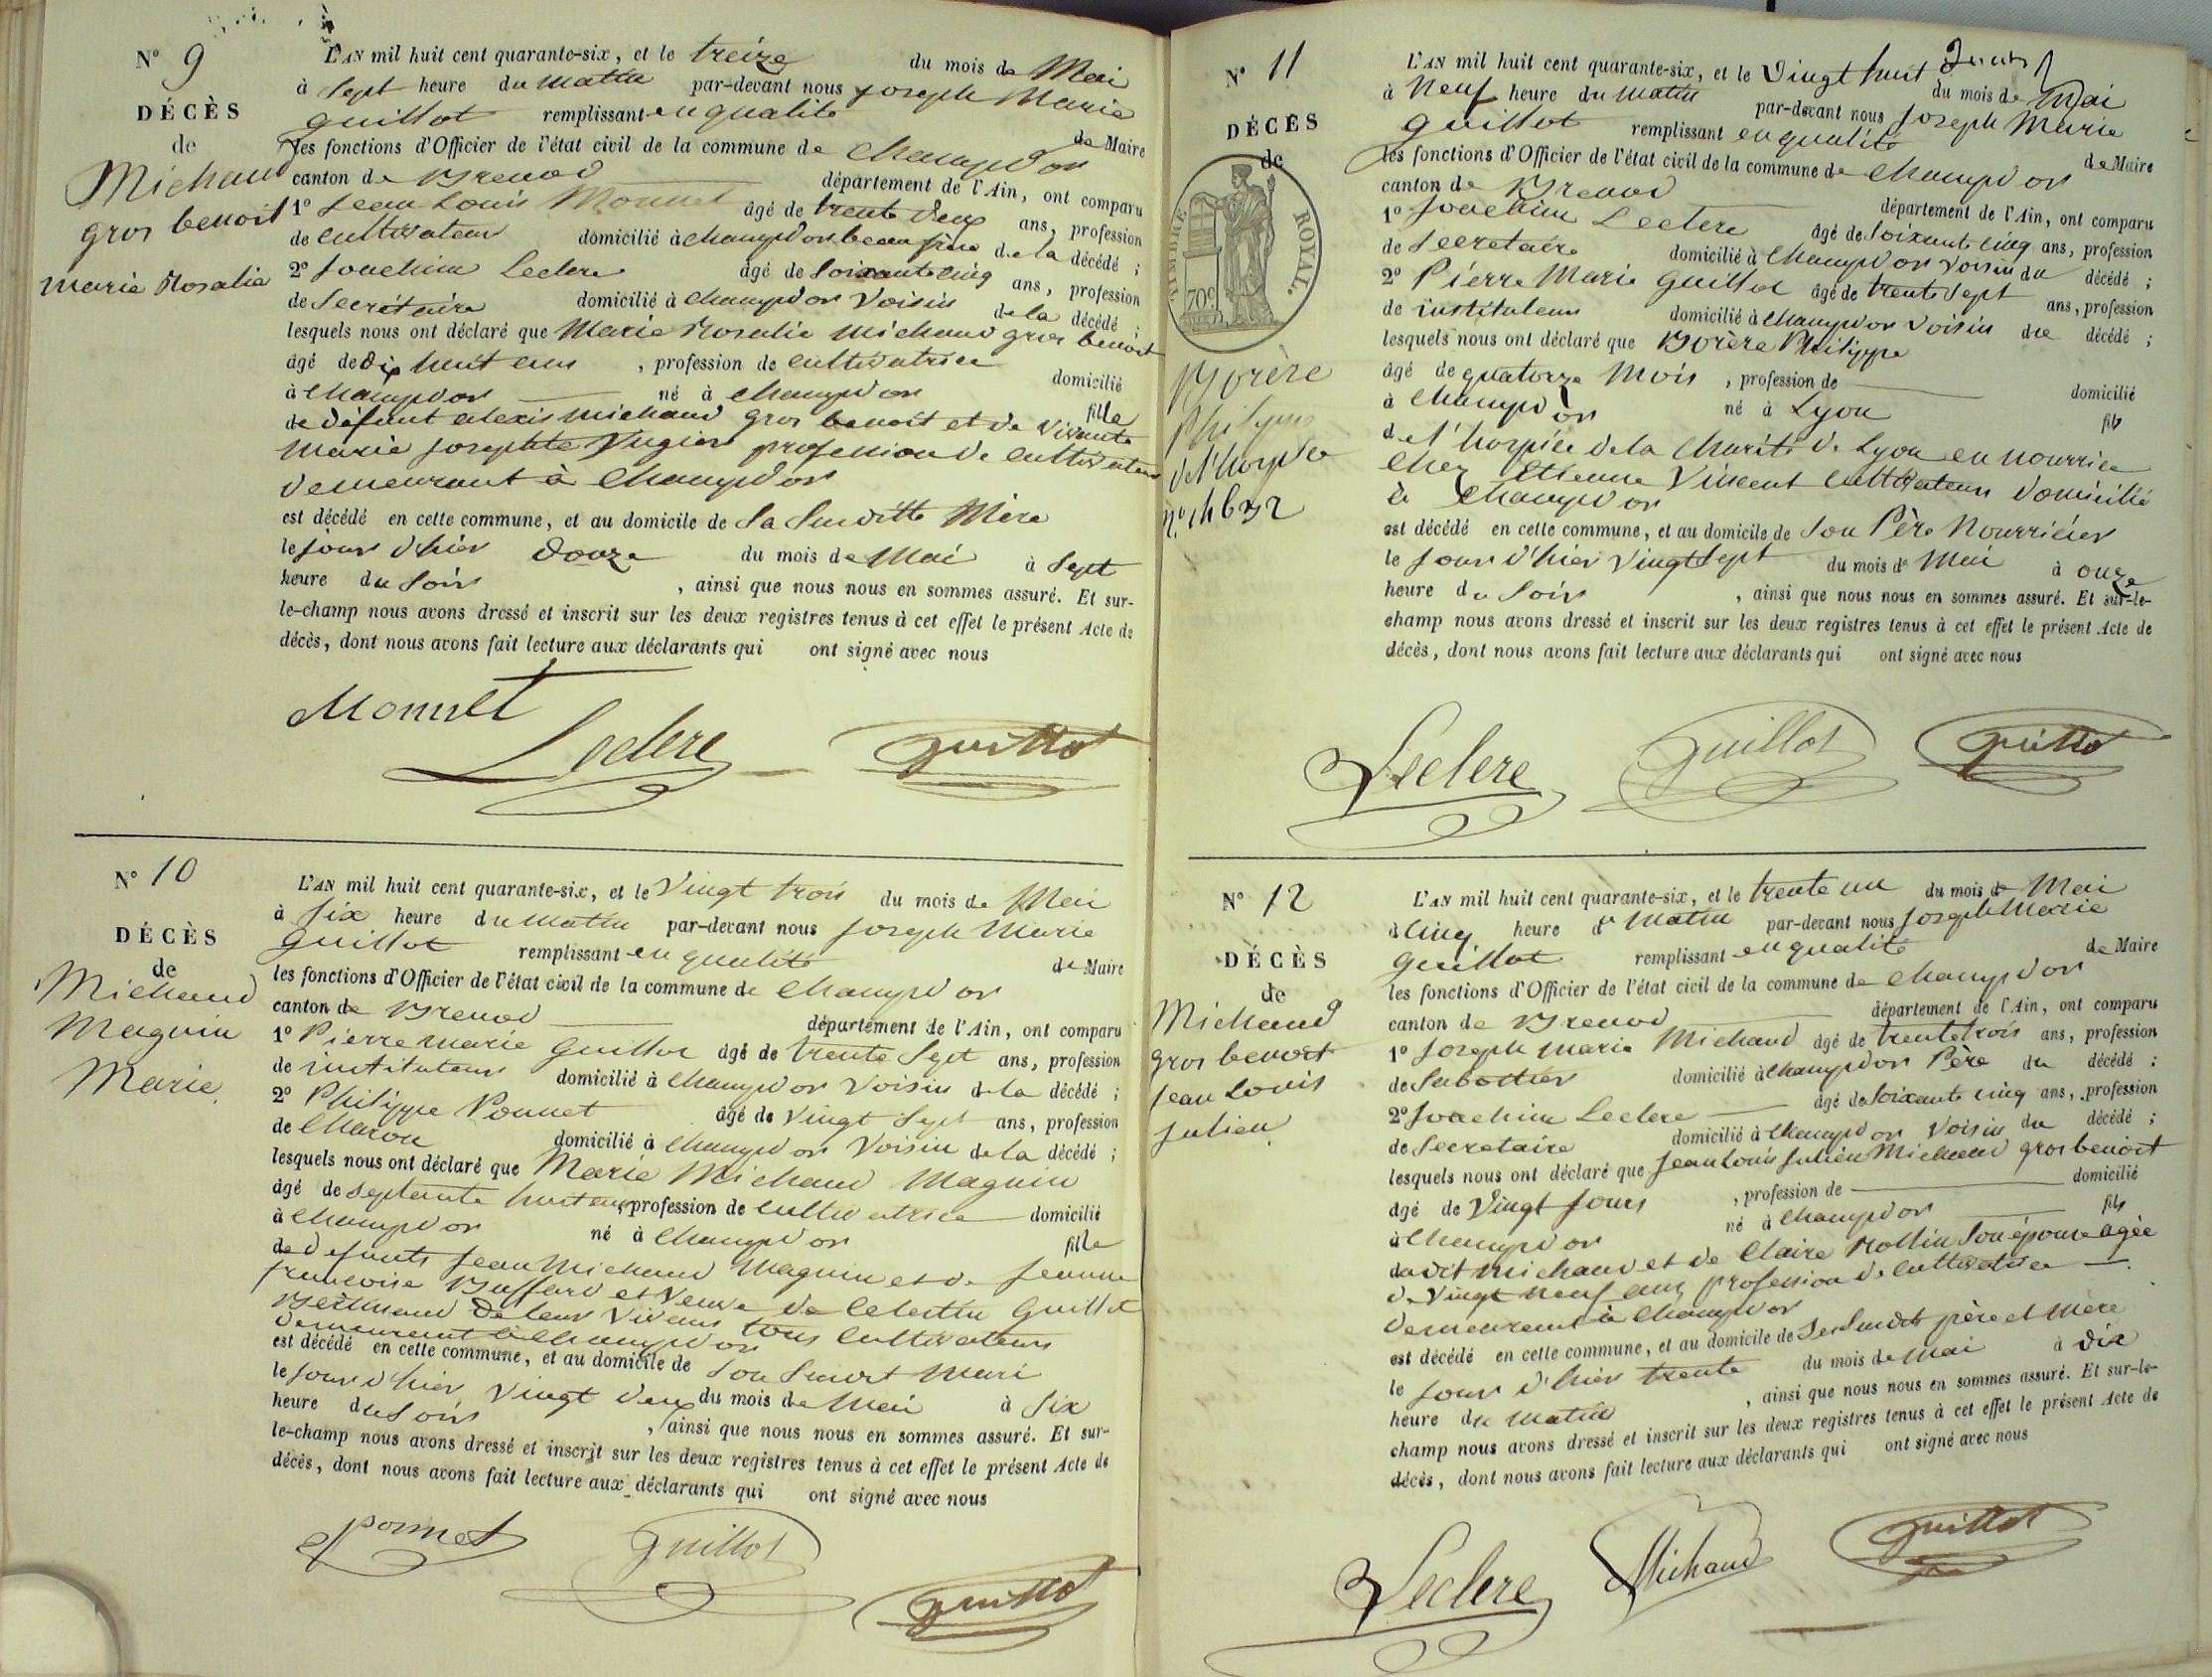 N° 9
DÉCÈS
de
Michaud
gros benoit
marie Rosalie
L'AN mil huit cent quarante-six, et le treize du mois de Mai
à Sept heure du matin par-devant nous joseph Marie
guillot remplissant en qualité de Maire
les fonctions d'Officier de l'état civil de la commune de Champdor
canton de Brenod département de l'Ain, ont comparu
1° Jean Louis Monnet âgé de trente deux ans, profession
de cultivateur domicilié à champdor beau frère de la décédé ;
2° Joachim Leclerc âgé de soixante cinq ans, profession
de Secrétaire domicilié à champdor Voisin de la décédé ;
lesquels nous ont déclaré que Marie Rosalie Michaud gros benoit
âgé de dix huit ans , profession de cultivatrice domicilié
à champdor né à champdor fille
de défunt alexis michaud gros benoit et de vivante
marie josephte Vugier profession de cultivateur
demeurant à Champdor
est décédé en cette commune, et au domicile de Sa Susditte Mère
le jour d'hier douze du mois de Mai à Sept
heure du Soir , ainsi que nous nous en sommes assuré. Et sur-
le-champ nous avons dressé et inscrit sur les deux registres tenus à cet effet le présent Acte de
décès, dont nous avons fait lecture aux déclarants qui ont signé avec nous
Monnet
Leclerc guillot
N° 10
DÉCÈS
de
Michaud
Maguin
Marie
L'AN mil huit cent quarante-six, et le Vingt trois du mois de Mai
à six heure du matin par-devant nous joseph Marie
guillot remplissant en qualité de Maire
les fonctions d'Officier de l'état civil de la commune de Champdor
canton de Brenod département de l'Ain, ont comparu
1° Pierre marie guillot âgé de trente Sept ans, profession
de instituteur domicilié à champdor Voisin de la décédé ;
2° Philippe Ponnet âgé de Vingt Sept ans, profession
de Charon domicilié à champdor Voisin de la décédé ;
lesquels nous ont déclaré que Marie Michaud Maguin
âgé de septante huit ans, profession de cultivatrice domicilié
à champdor né à champdor fille
de defunts jean Michaud Maguin et de jeanne
francoise Buffard et veuve de Celestin guillot
de leur vivans tous cultivateurs
demeurant à champdor
est décédé en cette commune, et au domicile de son Susdit mari
le jour d'hier Vingt deux du mois de Mai à six
heure du soir , ainsi que nous nous en sommes assuré. Et sur-
le-champ nous avons dressé et inscrit sur les deux registres tenus à cet effet le présent Acte de
décès, dont nous avons fait lecture aux déclarants qui ont signé avec nous
Ponnet guillot
guillot
N° 11
DÉCÈS
de
TIMBRE ROYAL.
70c
Borère
Philippe
de l'hospice
n° 14632
L'AN mil huit cent quarante-six, et le Vingt huit du mois de Mai
à Neuf heure du matin par-devant nous joseph Marie
guillot remplissant en qualité de Maire
les fonctions d'Officier de l'état civil de la commune de Champdor
canton de Brenod département de l'Ain, ont comparu
1° Joachim Leclerc âgé de soixante cinq ans, profession
de Secretaire domicilié à champdor voisin du décédé ;
2° Pierre Marie guillot âgé de trente Sept ans, profession
de instituteur domicilié à champdor voisin du décédé ;
lesquels nous ont déclaré que Borère Philippe
âgé de quatorze Mois , profession de domicilié
à champdor né à Lyon fils
de l'hospice de la Charité de Lyon en nourrice
chez Etienne Vincent cultivateur domicilié
à champdor
est décédé en cette commune, et au domicile de son Père Nourricier
le jour d'hier vingt sept du mois de Mai à onze
heure du Soir , ainsi que nous nous en sommes assuré. Et sur-le-
champ nous avons dressé et inscrit sur les deux registres tenus à cet effet le présent Acte de
décès, dont nous avons fait lecture aux déclarants qui ont signé avec nous
Leclerc guillot guillot
N° 12
DÉCÈS
de
Michaud
gros benoit
jean Louis
julien
L'AN mil huit cent quarante-six, et le trente un du mois de Mai
à cinq heure du matin par-devant nous joseph Marie
guillot remplissant en qualité de Maire
les fonctions d'Officier de l'état civil de la commune de Champdor
canton de Brenod département de l'Ain, ont comparu
1° joseph marie Michaud âgé de trente trois ans, profession
de Sabottier domicilié à champdor Père du décédé ;
2° Joachim Leclerc âgé de soixante cinq ans, profession
de Secretaire domicilié à champdor Voisin du décédé ;
lesquels nous ont déclaré que jean Louis julien Michaud gros benoit
âgé de vingt jours , profession de domicilié
à champdor né à champdor fils
du dit michaud et de Claire Rollin son épouse agée
de vingt neuf ans profession de cultivatrice
demeurant à champdor
est décédé en cette commune, et au domicile de ses Susdits père et mère
le jour d'hier trente du mois de mai à dix
heure du matin , ainsi que nous nous en sommes assuré. Et sur-le-
champ nous avons dressé et inscrit sur les deux registres tenus à cet effet le présent Acte de
décès, dont nous avons fait lecture aux déclarants qui ont signé avec nous
Leclerc Michaud guillot